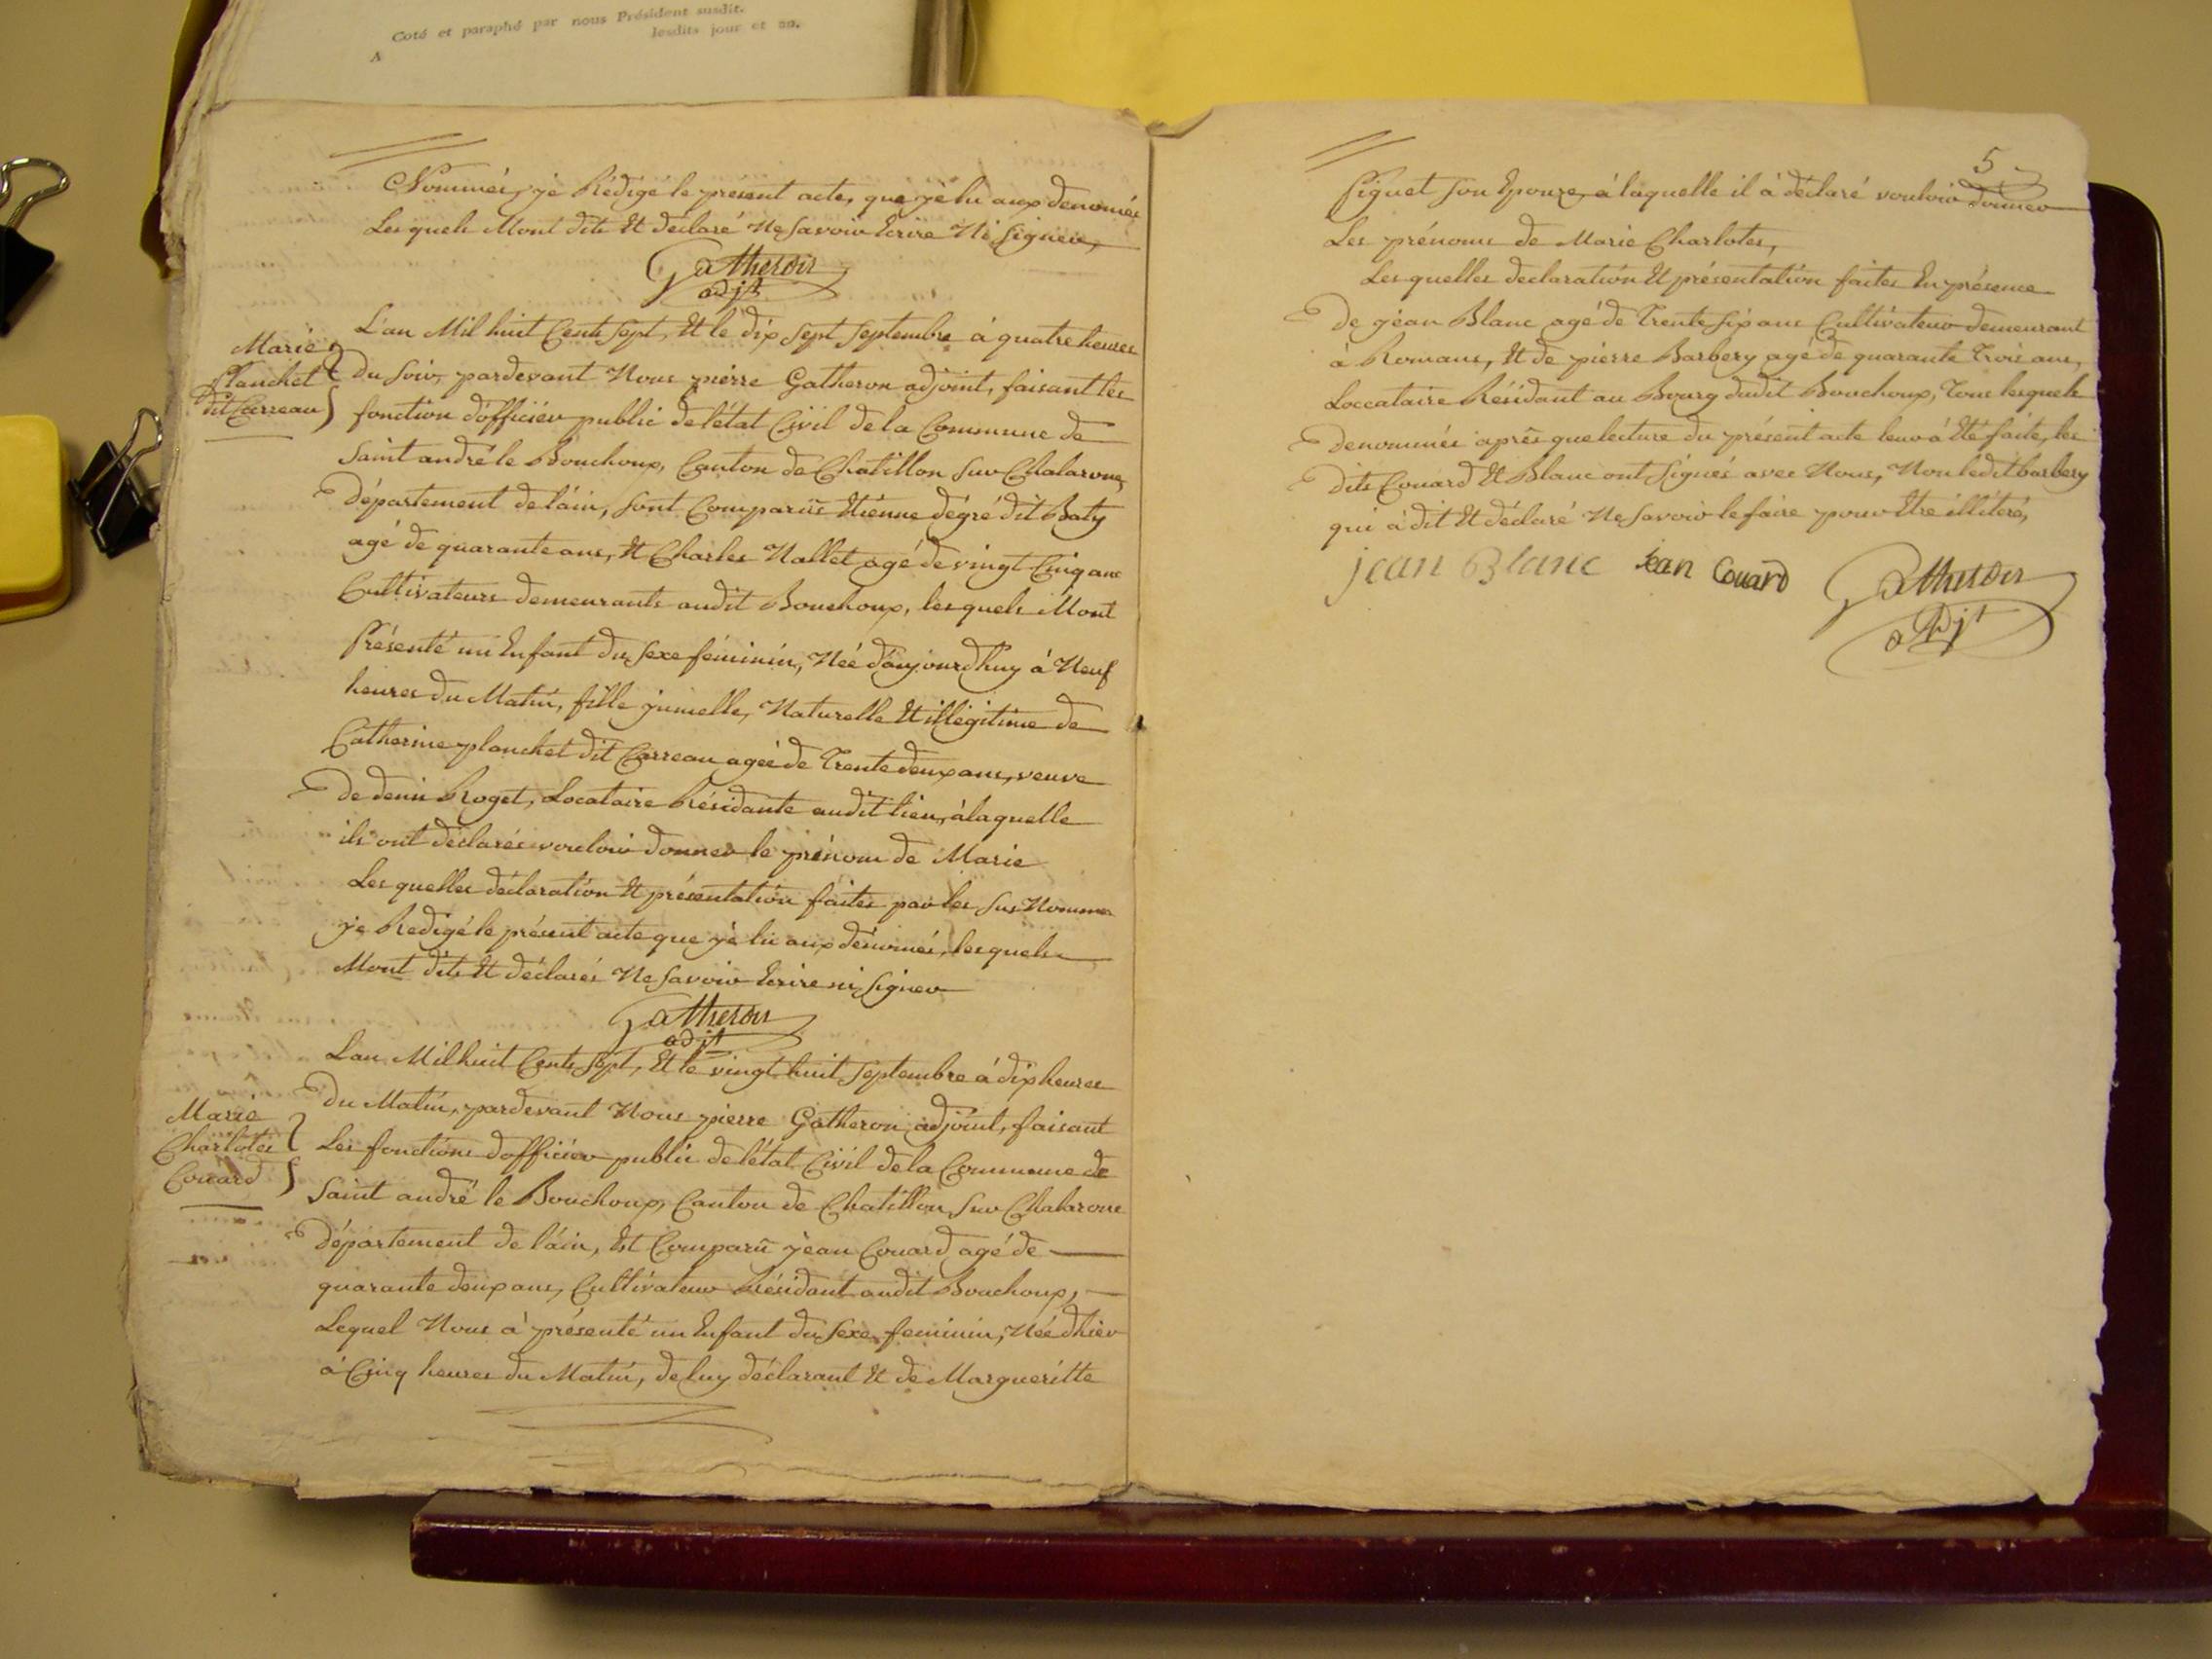 Coté et paraphé par nous Président susdit.
A lesdits jour et an.
Nommés, jé Rédigé le présent acte, que jé lu aux denomés
Lesquels Mont dits Et déclaré Ne Savoir Ecrire Ni Signer,
Gatheron
adjt
Marie
Planchet
dit Carreau
L'an Mil huit Cents Sept, Et le dix Sept Septembre à quatre heures
du Soir, pardevant Nous pierre Gatheron adjoint, faisant les
fonction d'officiér public de létat Civil de la Commune de
Saint andré le Bouchoux, Canton de Chatillon Sur Chalarone,
Département de láin, Sont Comparûs Etiénne dégré dit Baty
agé de quarante ans, Et Charles Nallet agé de vingt Cinq ans
Cultivateurs demeurants audit Bouchoux, lesquels Mont
Présenté un Enfant du Sexe féminin, Néé daujourdhuy à Neuf
heures du Matin, fille jumelle, Naturelle Et illégitime de
Catherine planchet dit Carreau agéé de Trente deux ans, veuve
de denis Roget, Locataire Résidante audit lieu, à laquelle
ils ont déclarés vouloir donner le prénom de Marie
Les quelles déclaration Et présentation faites par les Sus Nommés
jé Redigé le présent acte que jé lu aux dénomés, lesquels
Mont dits Et déclarés Ne Savoir Ecrire ni Signer
Gatheron
adjt
Marie
Charlotes
Couard
L'an Mil huit Cents Sept, Et le vingt huit Septembre à dix heures
du Matin, pardevant Nous pierre Gatheron adjoint, faisant
Les fonctions dofficiér public de létat Civil de la Commune de
Saint andré le Bouchoux, Canton de Chatillon Sur Chalarone
Département de láin, Est Comparû jean Couard agé de
quarante deux ans, Cultivateur Résidant audit Bouchoux,
Lequel Nous à présenté un Enfant du Sexe feminin, Néé dhiér
à Cinq heures du Matin, de luy déclarant Et de Marguéritte
5
Siguet Son Epouze, à laquelle il à déclaré vouloir donner
Les prénoms de Marie Charlotes,
Les quelles declaration Et présentation faites En présence
de jéan Blanc agé de Trente Six ans Cultivateur demeurant
à Romans, Et de pierre Barbery agé de quarante Trois ans,
Loccataire Résidant au Bourg dudit Bouchoux, Tous lesquels
denommés aprés que lecture du présent acte leur á Eté faite, les
dits Couard Et Blanc ont Signés avec Nous, Non ledit barbery
qui à dit Et déclaré Ne Savoir le faire pour Etre illitéré,
jean Blanc jean Couard Gatheron
adjt